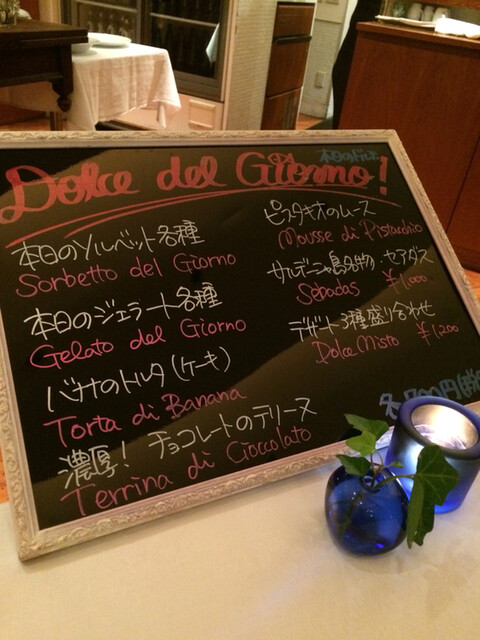 Dolce del Giorno!
本日のドルチェ
本日のソルベット各種
Sorbetto del Giorno
本日のジェラート各種
Gelato del Giorno
バナナのトルタ(ケーキ)
Torta di Banana
濃厚! チョコレートのテリーヌ
Terrina di Cioccolato
ピスタキオのムース
Mousse di Pistacchio
サルデーニャ島名物、セアダス
Sebadas ¥1,000
デザート3種盛り合わせ
Dolce Misto ¥1,200
各700円